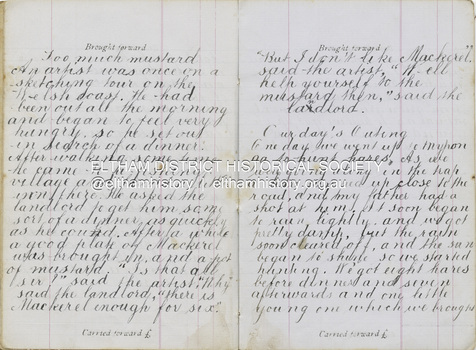 Brought forward
Too much mustard
An artist was once on a
sketching tour on the
Welsh coast. He had
been out all the morning
and began to feel very
hungry, so he set out
in search of a dinner.
After
he came
village a
He asked the
landlord to get him some
sort of a dinner, as quickly
as he could. After a while
a good plate of Mackerel
was brought in, and a pot
of mustard. "Is that all
said the artist. "Why"
said the landlord, "there is
Mackerel enough for six."
Carried forward £
Brought forward
"But I don't like Mackerel"
said the artist, "Well
help yourself to the
mustard then," said the
landlord.
Our day's Outing
One day we went up to Myron
As we
were on the
up close to the
road, and my father had a
shot at him, it soon began
to rain lightly, and we got
pretty damp, but the rain
soon cleared off, and the sun
began to shine so we started
hunting. We got eight hares
before dinner and seven
afterwards and one little
young one which we brought
Carried forward £
ELTHAM DISTRICT HISTORICAL SOCIETY
@elthamhistory elthamhistory.org.au